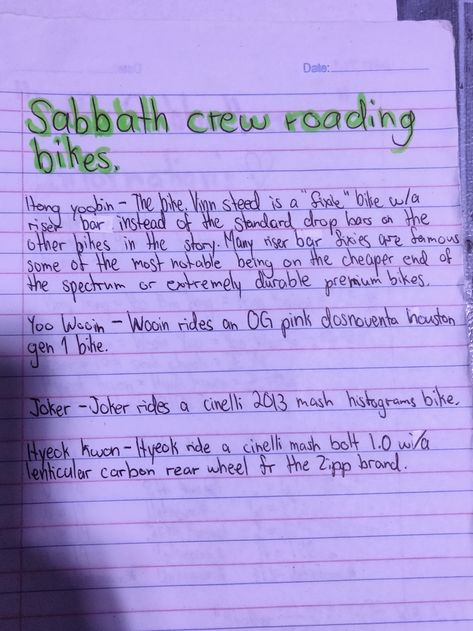 Date:
Sabbath crew roading
bikes.
Hong yoobin - The bike Vinn steed is a "fixie" bike w/a
riser bar instead of the standard drop bars on the
other bikes in the story. Many riser bar fixies are famous
some of the most notable being on the cheaper end of
the spectrum or extremely durable premium bikes.
Yoo Wooin - Wooin rides an OG pink dosnoventa houston
gen 1 bike.
Joker - Joker rides a cinelli 2013 mash histograms bike.
Hyeok Kwon - Hyeok ride a cinelli mash bolt 1.0 w/a
lenticular carbon rear wheel fr the Zipp brand.